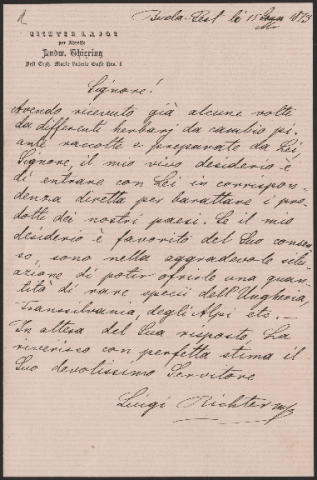 RICHTER LAJOS
per Adresse
Ludw. Thiering
Pest Erzh. Marie Valerie Gasse Nro. 1
Buda-Pest li 15 1873
Signore!
Avendo ricevuto già alcune volte
da differenti herbarj da cambio pi-
ante raccolte e preparate da Lei,
Signore, il mio vivo desiderio è
di entrare con Lei in corrispon-
denza diretta per barattare i pro-
dotte dei nostri paesi. Se il mio
desiderio è favorito del Suo consen-
so, sono nella aggradevole situ-
azione di potir ofrirle una quan-
tità di rare specii dell'Ungheria,
Transsilvania, degli Alpi etc. –
In attesa del Sua risposto, La
riverisco con perfetta stima il
Suo devotissimo Servitore
Luigi Richter